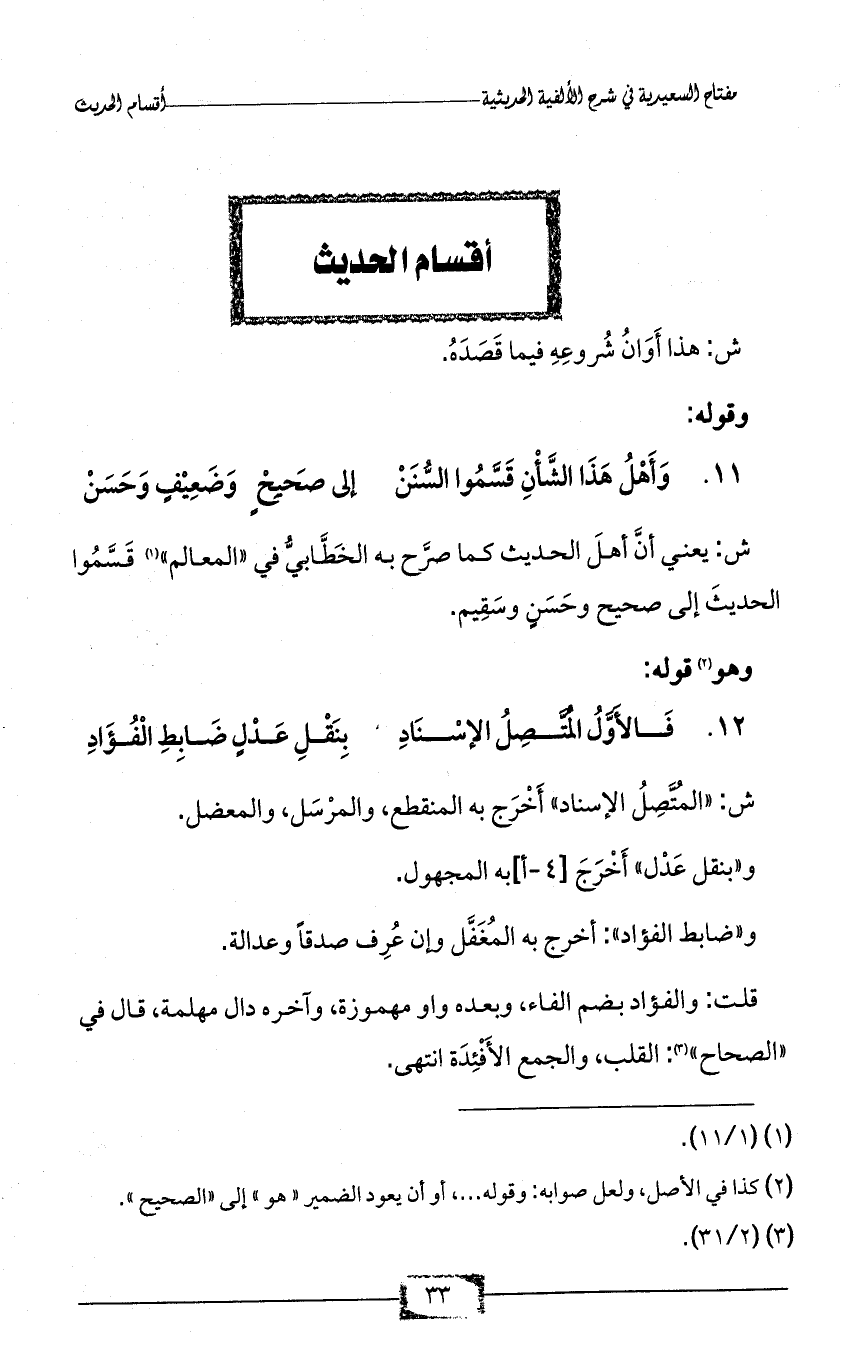 مفتاح السعيدية في شرح الألفية الحديثية ـــــــــــــ أقسام الحديث
أقسام الحديث
ش: هذا أَوَانُ شُروعِهِ فيما قَصَدَهُ.
وقوله:
١١. وَأَهْلُ هَذَا الشَّأْنِ قَسَّمُوا السُّنَنْ إلى صَحَيحْ ٍ وَضَعِيْفٍ وَحَسَنْ
ش: يعني أنَّ أهلَ الحديث كما صرَّح به الخَطَّابيُّ في «المعالم»(١) قَسَّمُوا
الحديثَ إلى صحيح وحَسَنٍ وسَقِيم.
وهو(٢) قوله:
١٢. فَـالأَوَّلُ الْمُتَّـصِلُ الإسْـنَادِ بِنَقْـلِ عَـدْلٍ ضَـابِطِ الْفُـؤَادِ
ش: «المُتَّصِلُ الإسناد» أَخْرَج به المنقطع، والمرْسَل، والمعضل.
و«بنقل عَدْل» أَخْرَجَ [٤ -أ]به المجهول.
و«ضابط الفؤاد»: أخرج به المُغَفَّل وإن عُرِف صدقاً وعدالة.
قلت: والفؤاد بضم الفاء، وبعده واو مهموزة، وآخره دال مهلمة، قال في
«الصحاح»(٣): القلب، والجمع الأَفْئِدَة انتهى.
(١) (١١/١).
(٢) كذا في الأصل، ولعل صوابه: وقوله...، أو أن يعود الضمير « هو » إلى «الصحيح ».
(٣) (٣١/٢).
٣٣